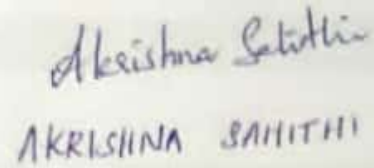 AKrishna Sahithi
AKRISHNA SAHITHI